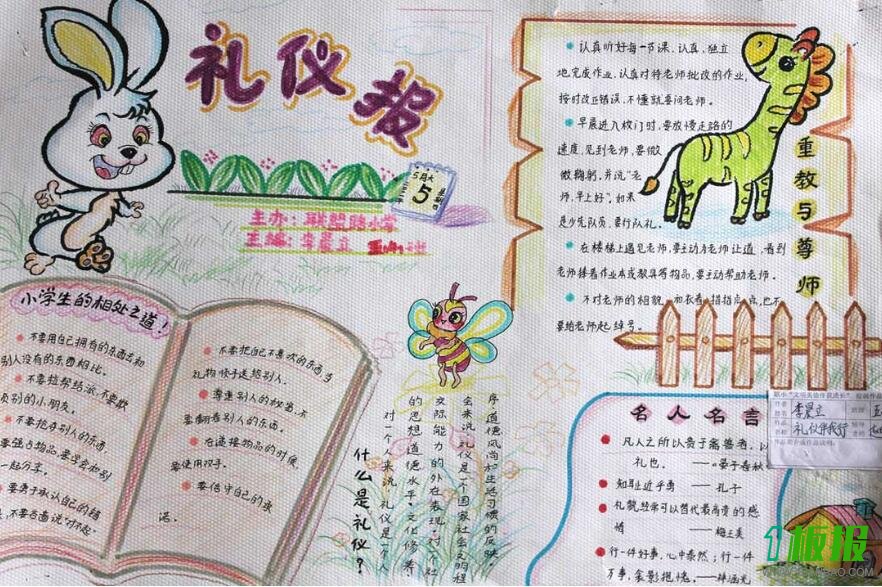 礼仪报
5月大
5
星期四
主办:联盟路小学
主编:李晨立
小学生的相处之道!
不要用自己拥有的东西去和
别人没有的东西相比。
不要拉帮结派,不要欺
负别的小朋友。
一起分享。
要勇于承认自己的错
不要把自己不喜欢的东西当
礼物顺手送给别人。
尊重别人的秘密,不
要翻看别人的东西。
在递接物品的时候,
要使用双手。
要信守自己的承
诺。
什么是礼仪?
对一个人来说,礼仪是一个人
的思想道德水平、文化修养、
交际能力的外在表现,对一个社
会来说,礼仪是一个国家社会文明程
序、道德风尚和生活习惯的反映。
认真听好每一节课,认真、独立
地完成作业,认真对待老师批改的作业,
按时改正错误,不懂就要问老师。
早晨进入校门时,要放慢走路的
速度,见到老师,要做
做鞠躬,并说“老
师,早上好”,如果
是少先队员,要行队礼。
在楼梯上遇见老师,要主动为老师让道,看到
老师捧着作业本或教具等物品,要主动帮助老师。
不对老师的相貌、和衣着指指点点,也不
要给老师起绰号。
重教与尊师
名人名言
凡人之所以贵于禽兽者,以
礼也。——《晏子春秋》
知耻近乎勇 —— 孔子
礼貌经常可以替代最高贵的感
情 —— 梅里美
行一件好事,心中泰然;行一件
李晨立
礼仪伴我行
板报